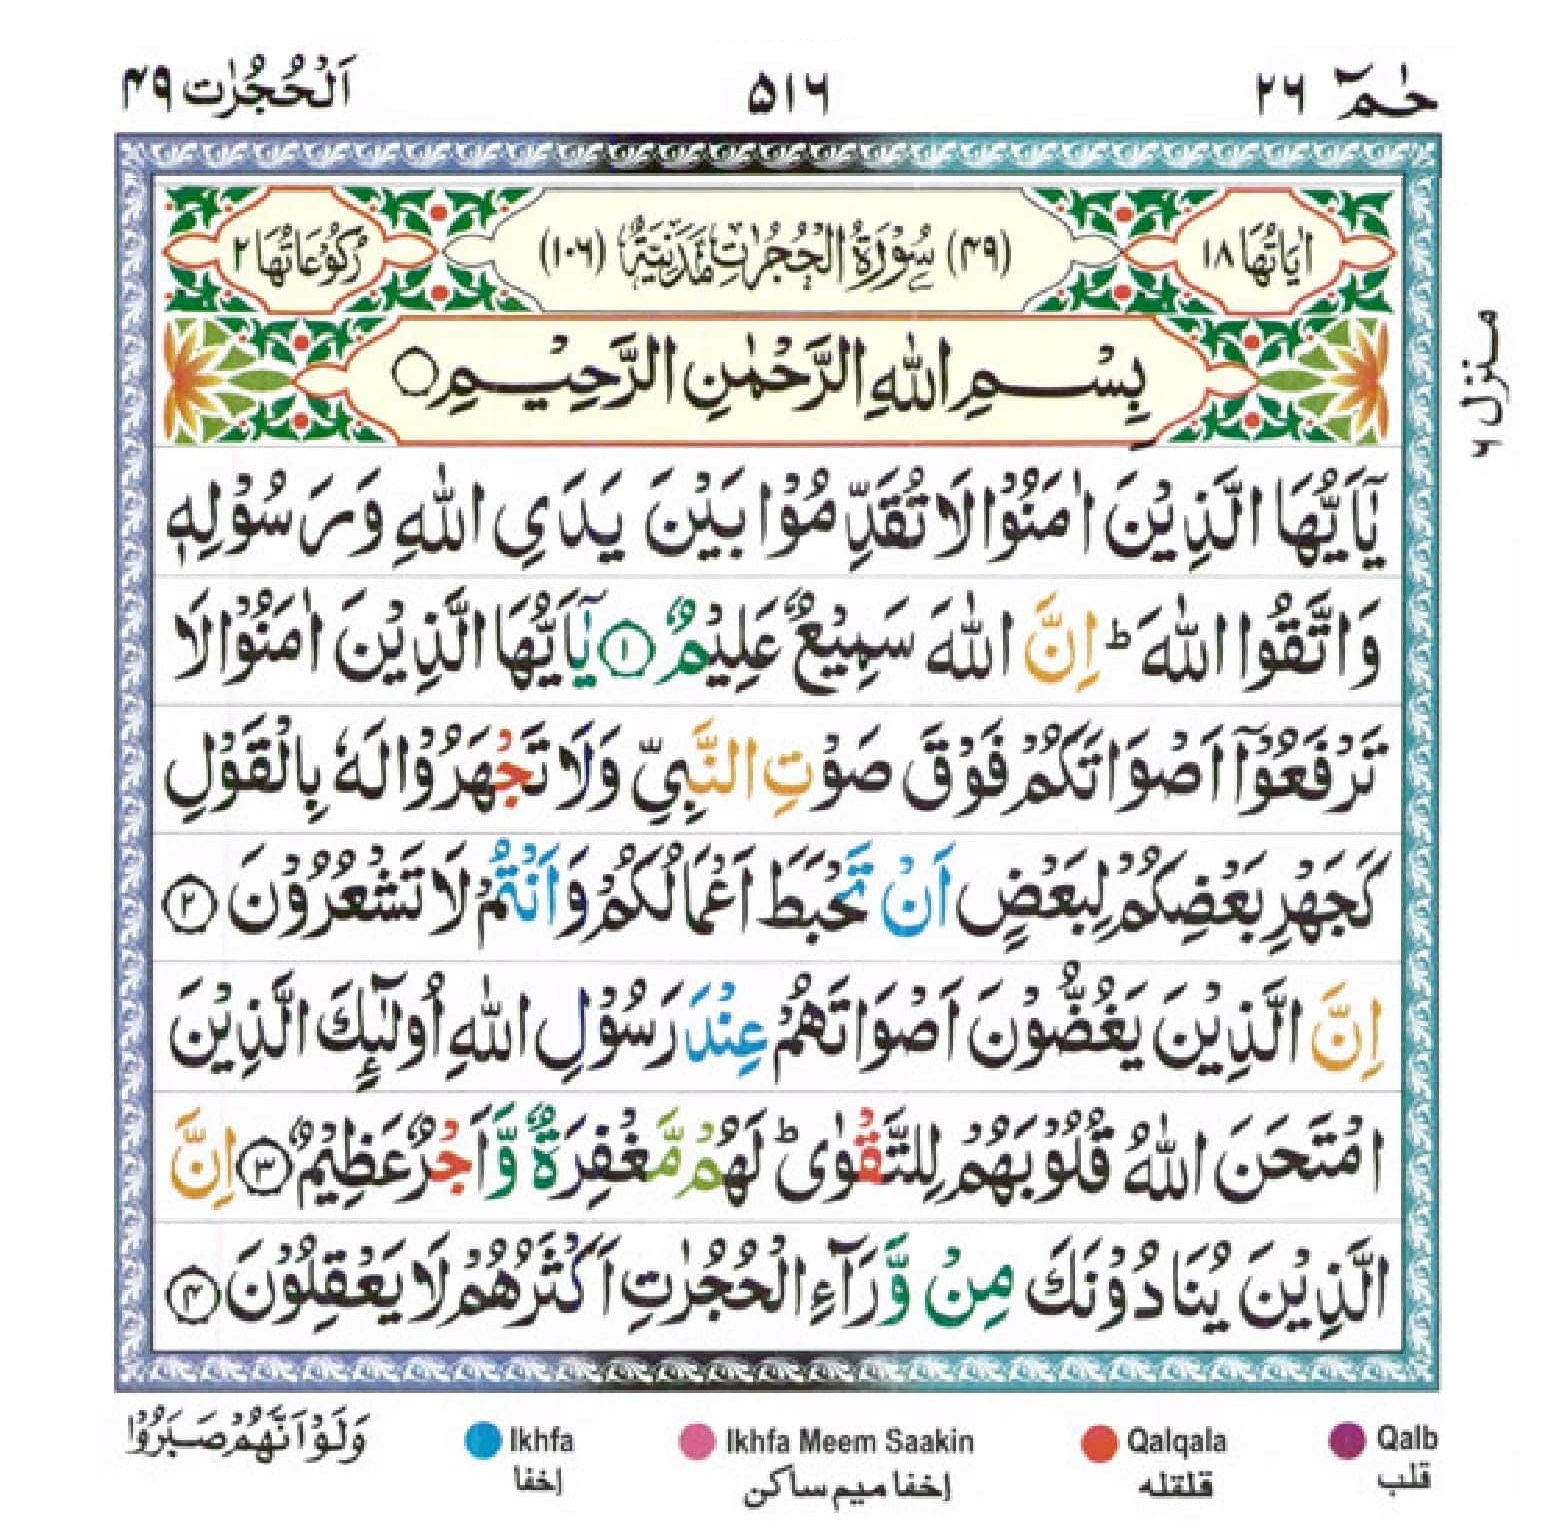 حٰمٓ ۲۶
۵۱۶
اَلْحُجُرٰت ۴۹
اٰيَاتُهَا ۱۸
(۴۹) سُوْرَةُ الْحُجُرٰتِ مَدَنِيَّةٌ (۱۰۶)
رُكُوْعَاتُهَا ۲
بِسْمِ اللّٰهِ الرَّحْمٰنِ الرَّحِيْمِ ○
يٰۤاَيُّهَا الَّذِيْنَ اٰمَنُوْا لَا تُقَدِّمُوْا بَيْنَ يَدَيِ اللّٰهِ وَرَسُوْلِهٖ
وَاتَّقُوا اللّٰهَ ؕ اِنَّ اللّٰهَ سَمِيْعٌ عَلِيْمٌ ۝۱ يٰۤاَيُّهَا الَّذِيْنَ اٰمَنُوْا لَا
تَرْفَعُوْۤا اَصْوَاتَكُمْ فَوْقَ صَوْتِ النَّبِيِّ وَلَا تَجْهَرُوْا لَهٗ بِالْقَوْلِ
كَجَهْرِ بَعْضِكُمْ لِبَعْضٍ اَنْ تَحْبَطَ اَعْمَالُكُمْ وَاَنْتُمْ لَا تَشْعُرُوْنَ ۝۲
اِنَّ الَّذِيْنَ يَغُضُّوْنَ اَصْوَاتَهُمْ عِنْدَ رَسُوْلِ اللّٰهِ اُولٰٓئِكَ الَّذِيْنَ
امْتَحَنَ اللّٰهُ قُلُوْبَهُمْ لِلتَّقْوٰى ؕ لَهُمْ مَّغْفِرَةٌ وَّاَجْرٌ عَظِيْمٌ ۝۳ اِنَّ
الَّذِيْنَ يُنَادُوْنَكَ مِنْ وَّرَآءِ الْحُجُرٰتِ اَكْثَرُهُمْ لَا يَعْقِلُوْنَ ۝۴
منزل ۶
وَلَوْ اَنَّهُمْ صَبَرُوْا
Ikhfa
اخفا
Ikhfa Meem Saakin
اخفا میم ساکن
Qalqala
قلقله
Qalb
قلب